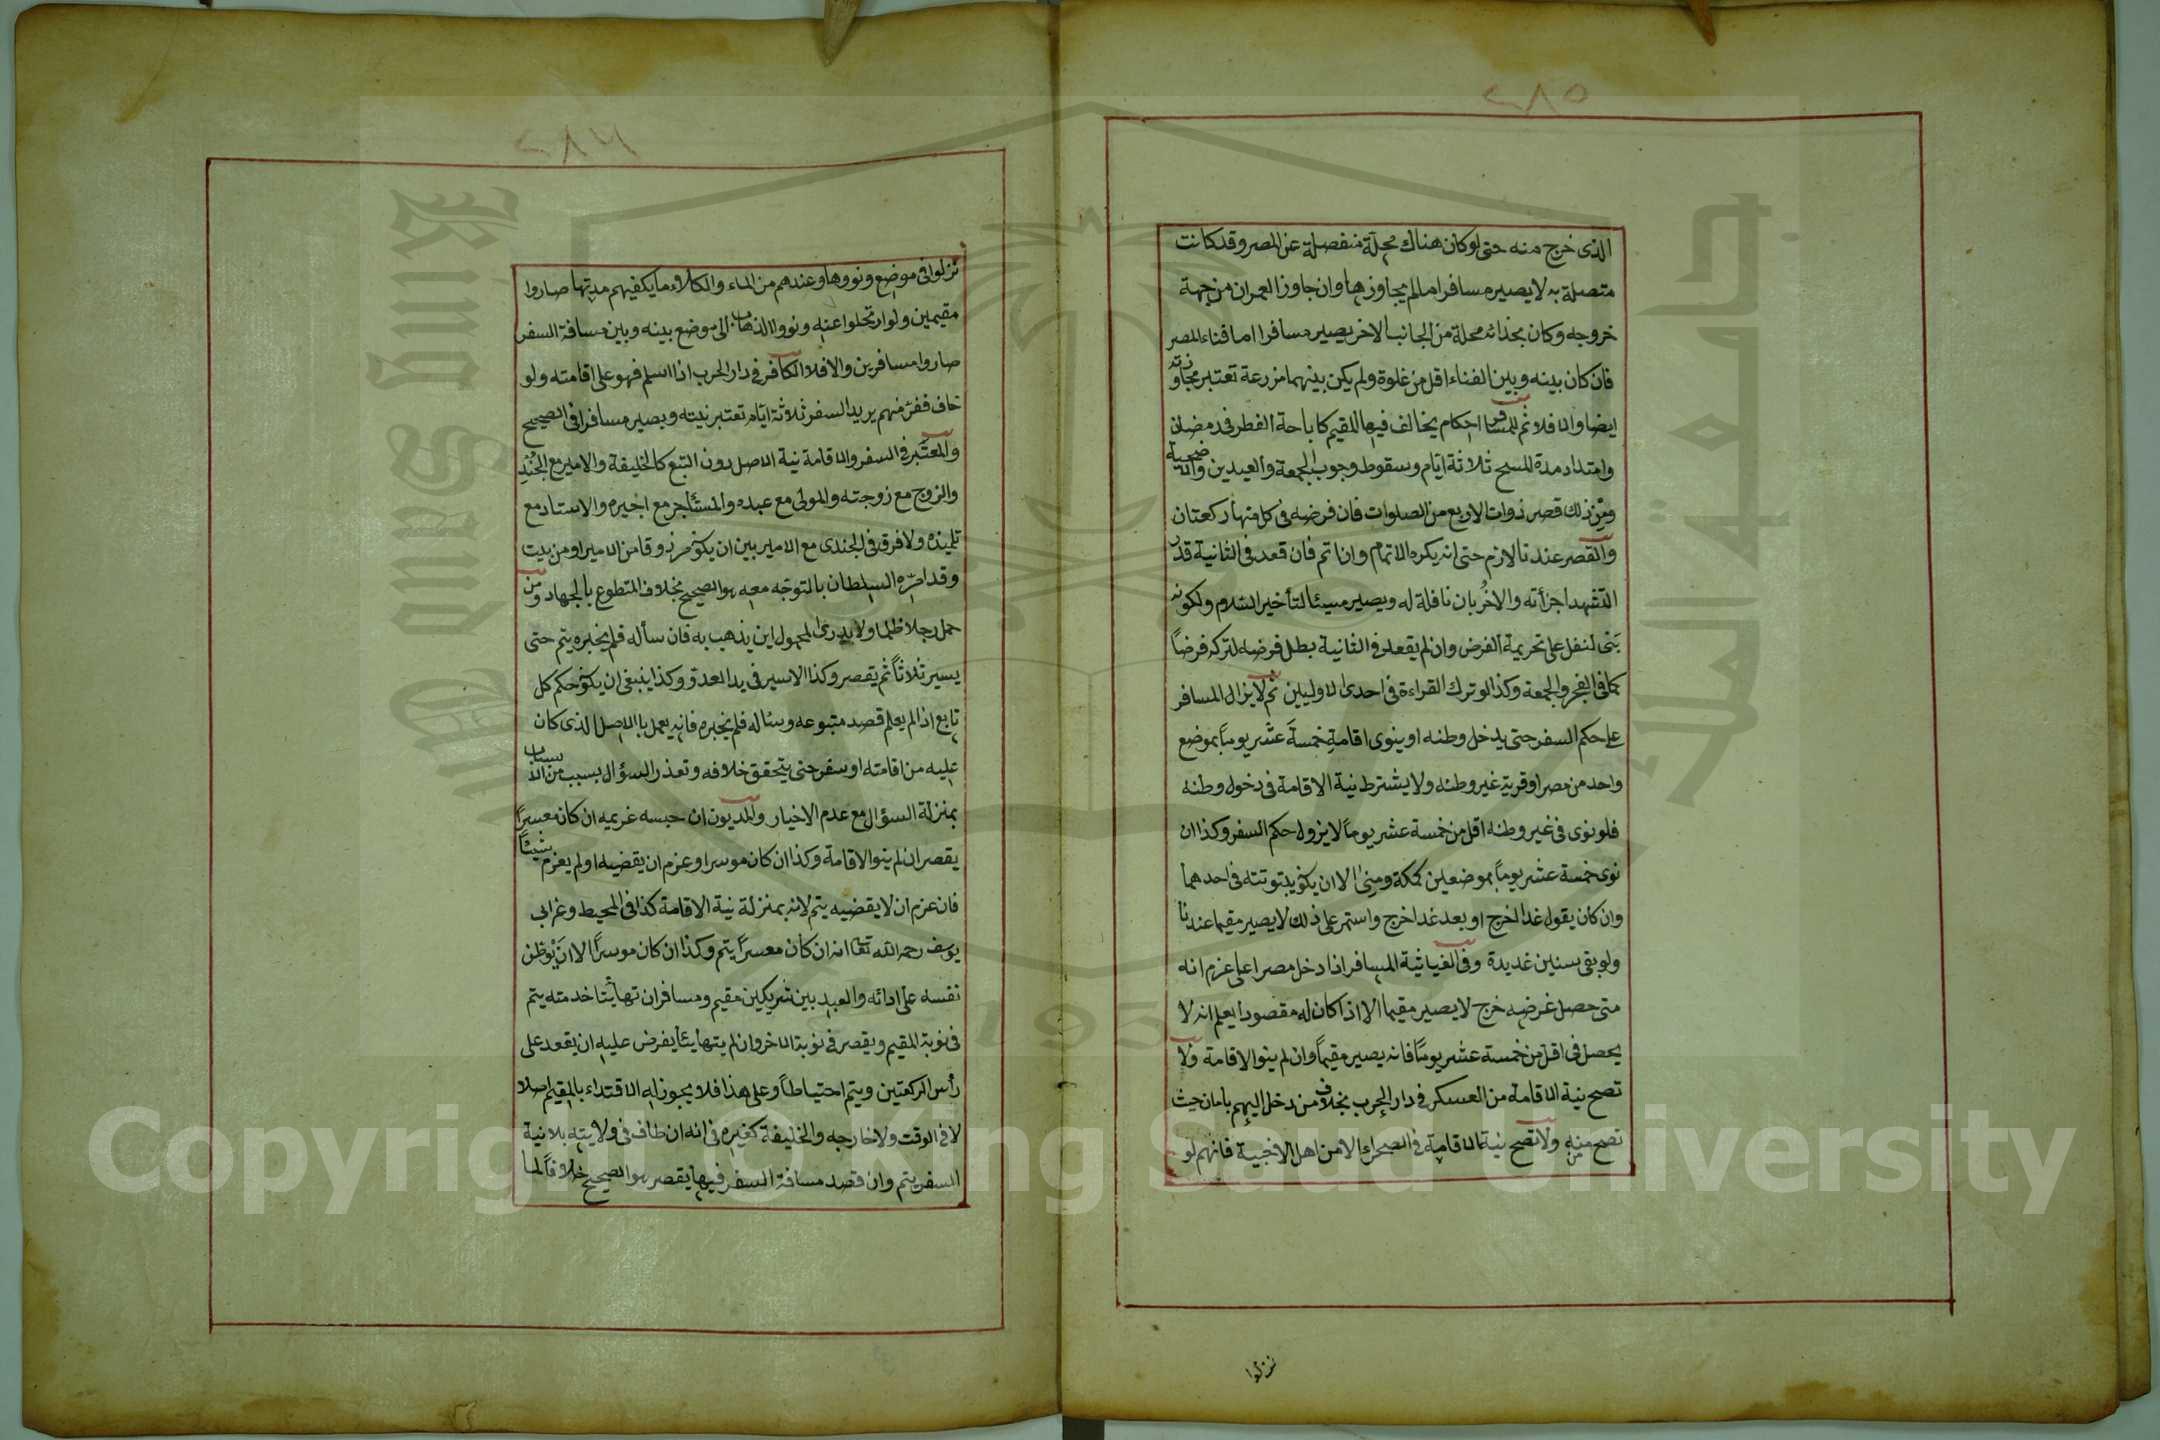 ٢٨٥
الذى خرج منه حتى لو كان هناك محلة منفصلة عن المصر وقد كانت
متصلة به لا يصير مسافرا ما لم يجاوزها وان جاوز العمران من جهة
خروجه وكان بحذائه محلة من الجانب الاخر يصير مسافرا اما فناء المصر
فان كان بينه وبين الفناء اقل من غلوة ولم يكن بينهما مزرعة تعتبر مجاوزته
ايضا والا فلا ثم للمسافر احكام يخالف فيها المقيم كاباحة الفطر فى رمضان
وامتداد مدة المسح ثلاثة ايام وسقوط وجوب الجمعة والعيدين والاضحية
ومن ذلك قصر ذوات الاربع من الصلوات فان فرضه فى كل منها ركعتان
والقصر عندنا لازم حتى انه يكره الاتمام وان اتم فان قعد فى الثانية قدر
التشهد اجزأته والاخريان نافلة له ويصير مسيئا لتأخير السلام ولكونه
بنى النفل على تحريمة الفرض وان لم يقعد فى الثانية بطل فرضه لتركه فرضاً
كما فى الفجر والجمعة وكذا لو ترك القراءة فى احدى الاوليين ثم لا يزال المسافر
على حكم السفر حتى يدخل وطنه او ينوى اقامة خمسة عشر يوماً بموضع
واحد من مصر او قرية غير وطنه ولا يشترط نية الاقامة فى دخول وطنه
فلو نوى فى غير وطنه اقل من خمسة عشر يوماً لا يزول حكم السفر وكذا ان
نوى خمسة عشر يوماً بموضعين كمكة ومنى الا ان يكون بيتوتته فى احدهما
وان كان يقول غدا اخرج او بعد غد اخرج واستمر على ذلك لا يصير مقيما عندنا
ولو بقى سنين عديدة وفى الغياثية المسافر اذا دخل مصرا على عزم انه
متى حصل غرضه خرج لا يصير مقيما الا اذا كان له مقصود يعلم انه لا
يحصل فى اقل من خمسة عشر يوماً فانه يصير مقيماً وان لم ينو الاقامة ولا
تصح نية الاقامة من العسكر فى دار الحرب بخلاف من دخل اليهم بامان حيث
تصح منه ولا تصح نية الاقامة فى الصحراء الا من اهل الاخبية فانهم لو
نزلوا
٢٨٦
نزلوا فى موضع ونووها وعندهم من الماء والكلاء ما يكفيهم مدتها صاروا
مقيمين ولو ارتحلوا عنه ونووا الذهاب الى موضع بينه وبين مسافة السفر
صاروا مسافرين والا فلا الكافر فى دار الحرب اذا اسلم فهو على اقامته ولو
خاف ففر منهم يريد السفر ثلاثة ايام تعتبر نيته ويصير مسافرا فى الصحيح
والمعتبر فى السفر والاقامة نية الاصل دون التبع كالخليفة والامير مع الجند
والزوج مع زوجته والمولى مع عبده والمستأجر مع اجيره والاستاد مع
تلميذه ولا فرق فى الجندى مع الامير بين ان يكون مرزوقا من الامير او من بيت
وقد امره السلطان بالتوجه معه هو الصحيح بخلاف المتطوع بالجهاد ومن
حمل رجلا ظلما ولا يدرى المحمول اين يذهب به فان سأله فلم يخبره يتم حتى
يسير ثلاثاً ثم يقصر وكذا الاسير فى يد العدو وكذا ينبغى ان يكون حكم كل
تابع اذا لم يعلم قصد متبوعه وسئاله فلم يخبره فانه يعمل بالاصل الذى كان
عليه من اقامته او سفر حتى يتحقق خلافه وتعذر السؤال بسبب من الاسباب
بمنزلة السؤال مع عدم الاخبار والمديون ان حبسه غريمه ان كان معسراً
يقصر ان لم ينو الاقامة وكذا ان كان موسرا وعزم ان يقضيه او لم يعزم شيئاً
فان عزم ان لا يقضيه يتم لانه بمنزلة نية الاقامة كذا فى المحيط وعن ابى
يوسف رحمه الله تعا انه ان كان معسراً يتم وكذا ان كان موسراً الا ان يوطن
نفسه على ادائه والعبد بين شريكين مقيم ومسافر ان تهايئا خدمته يتم
فى نوبة المقيم ويقصر فى نوبة الاخر وان لم يتهايئا يفرض عليه ان يقعد على
رأس الركعتين ويتم احتياطاً وعلى هذا فلا يجوز له الاقتداء بالمقيم اصلا
لا فى الوقت ولا خارجه والخليفة كغيره فى انه ان طاف فى ولايته بلا نية
السفر يتم وان قصد مسافة السفر فيها يقصر هو الصحيح خلافاً لما
Copyright © King Saud University
جامعة الملك سعود
King Saud University
1957